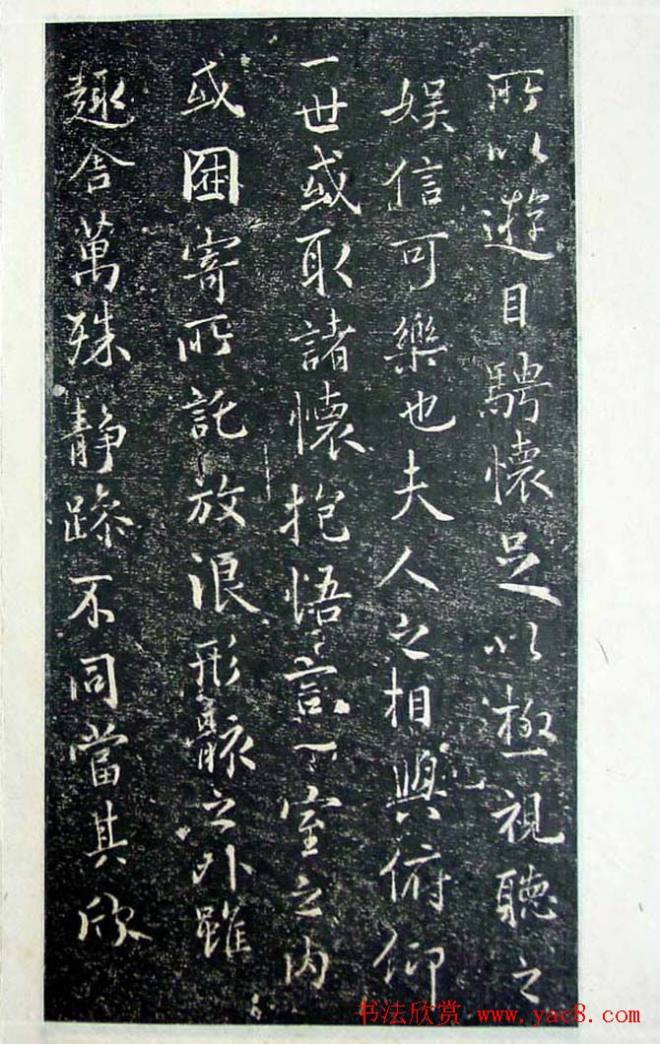 所以遊目騁懷足以極視聽之
娛信可樂也夫人之相與俯仰
一世或取諸懷抱悟言一室之內
或因寄所託放浪形骸之外雖
趣舍萬殊静躁不同當其欣
书法欣赏 www.yac8.com